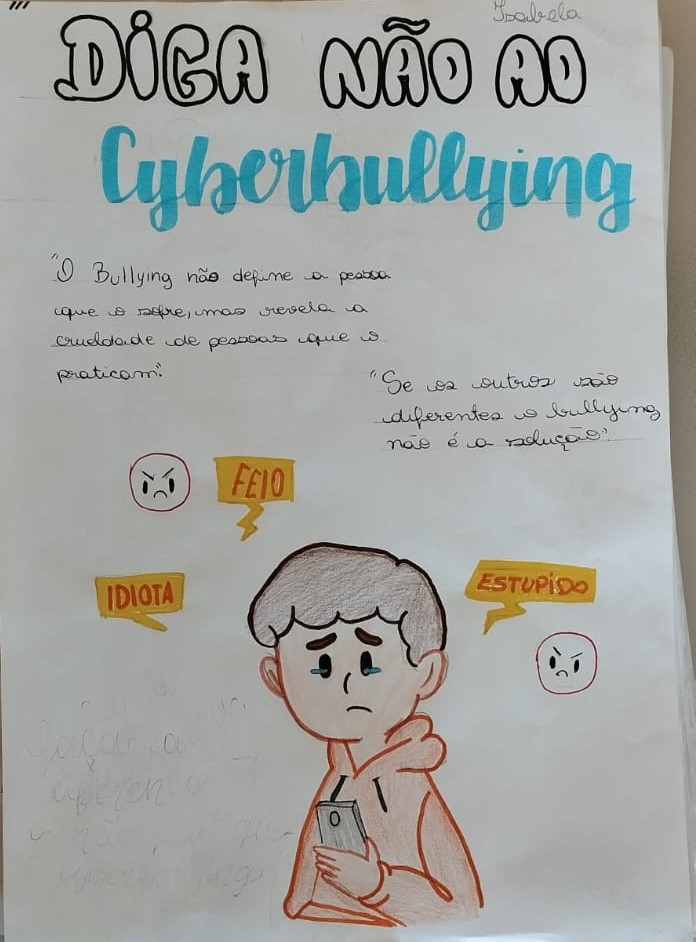 Isabela
DIGA NÃO AO
Cyberbullying
"O Bullying não define a pessoa
que o sofre, mas revela a
crueldade de pessoas que o
praticam".
"Se os outros são
diferentes o bullying
não é a solução".
FEIO
IDIOTA
ESTUPIDO